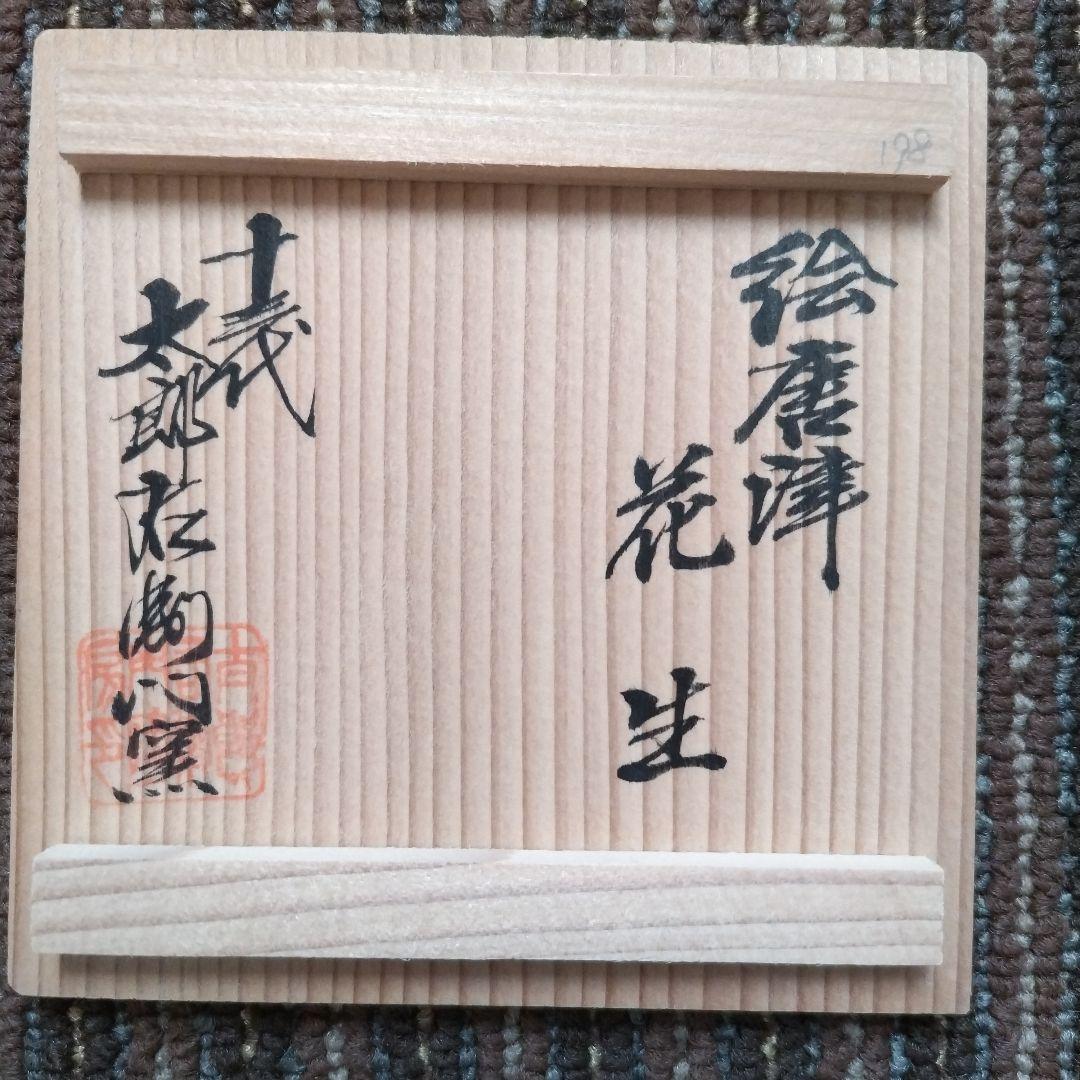 198
絵唐津
花生
十三代
太郎右衛門窯